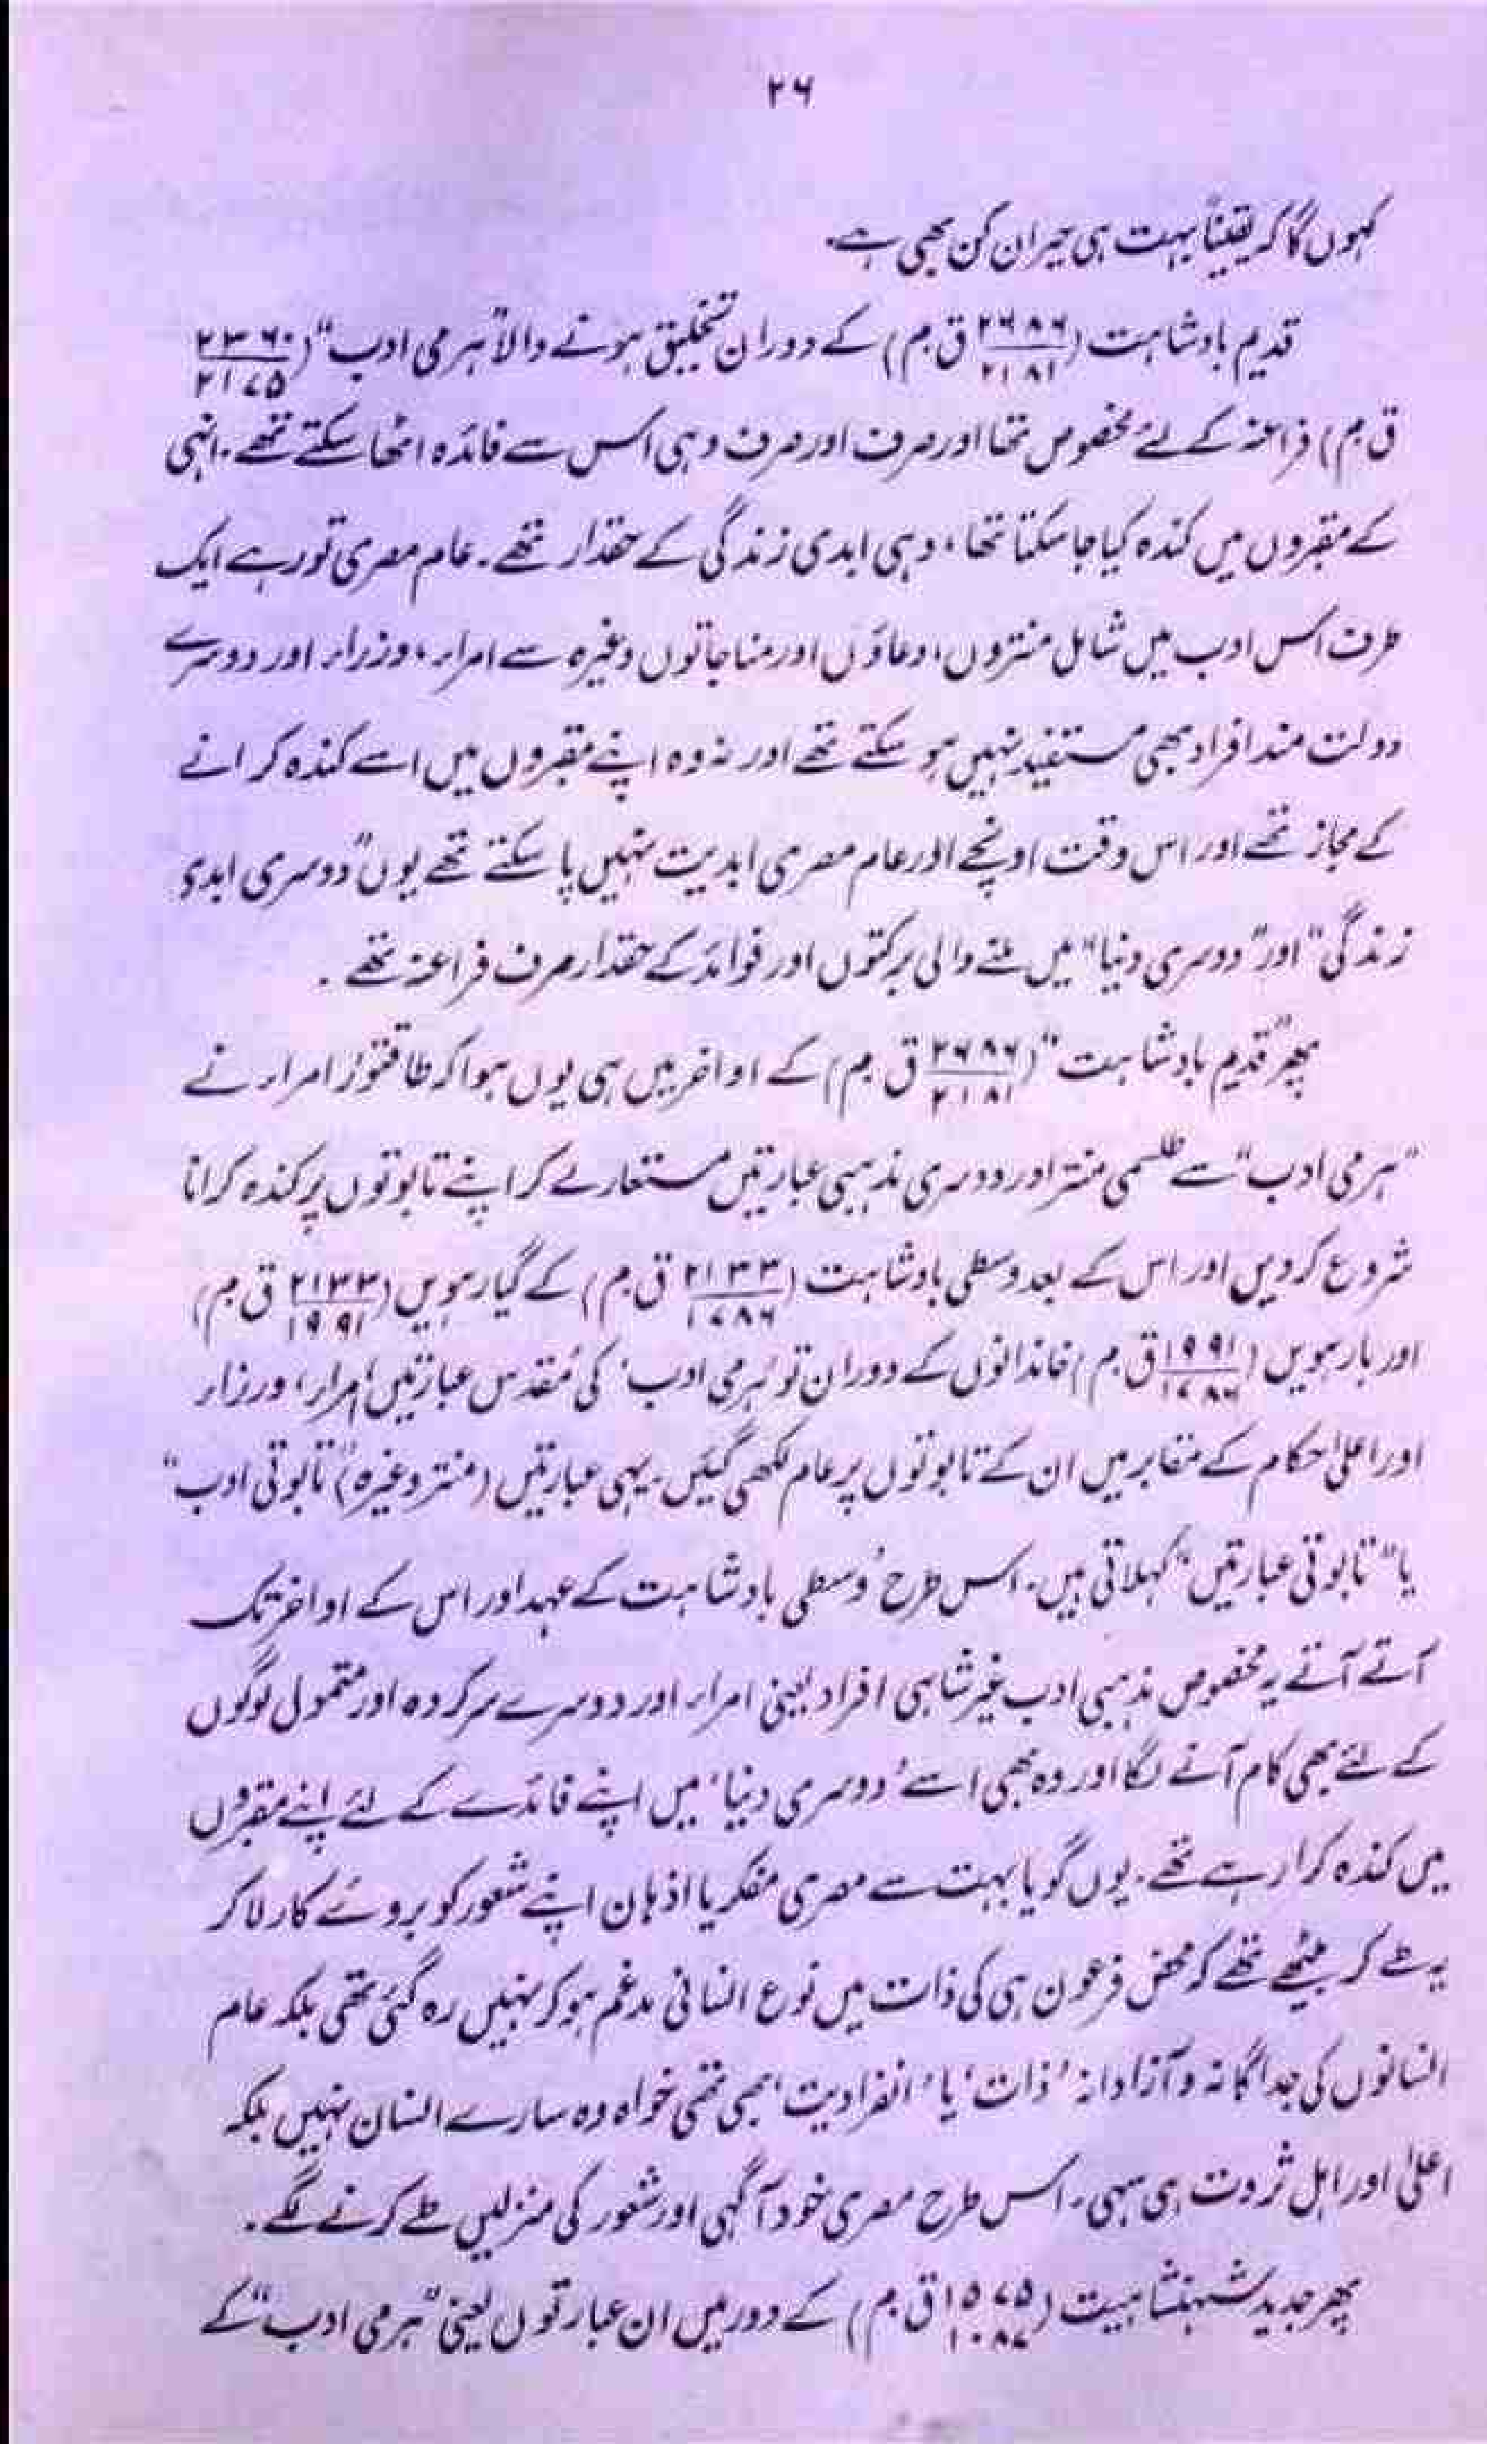 ۲۶
کہوں گا کہ یقیناً بہت ہی حیران کن بھی ہے۔
قدیم بادشاہت (۲۶۸۶/۲۱۸۱ ق م) کے دوران تخلیق ہونے والا "ہرمی ادب" (۲۳۶۰/۲۱۷۵
ق م) فراعنہ کے لئے مخصوص تھا اور صرف اور صرف وہی اس سے فائدہ اٹھا سکتے تھے۔ انہی
کے مقبروں میں کندہ کیا جا سکتا تھا، وہی ابدی زندگی کے حقدار تھے۔ عام مصری تو رہے ایک
طرف اس ادب میں شامل منتروں، دعاؤں اور مناجاتوں وغیرہ سے امراء، وزراء اور دوسرے
دولت مند افراد بھی مستفید نہیں ہو سکتے تھے اور نہ وہ اپنے مقبروں میں اسے کندہ کرانے
کے مجاز تھے اور اس وقت اونچے اور عام مصری ابدیت نہیں پا سکتے تھے یوں "دوسری ابدی
زندگی" اور "دوسری دنیا" میں ملنے والی برکتوں اور فوائد کے حقدار صرف فراعنہ تھے۔
پھر "قدیم بادشاہت" (۲۶۸۶/۲۱۸۱ ق م) کے اواخر میں ہی یوں ہوا کہ طاقتور امراء نے
"ہرمی ادب" سے طلسمی منتر اور دوسری مذہبی عبارتیں مستعار لے کر اپنے تابوتوں پر کندہ کرانا
شروع کر دیں اور اس کے بعد وسطی بادشاہت (۲۱۳۳/۱۷۸۶ ق م) کے گیارہویں (۲۱۳۳/۱۹۹۱ ق م)
اور بارہویں (۱۹۹۱/۱۷۸۶ ق م) خاندانوں کے دوران تو 'ہرمی ادب' کی مقدس عبارتیں امراء، وزراء
اور اعلیٰ حکام کے مقابر میں ان کے تابوتوں پر عام لکھی گئیں۔ یہی عبارتیں (منتر وغیرہ) "تابوتی ادب"
یا "تابوتی عبارتیں" کہلاتی ہیں۔ اس طرح 'وسطی بادشاہت کے عہد اور اس کے اواخر تک
آتے آتے یہ مخصوص مذہبی ادب غیر شاہی افراد یعنی امراء اور دوسرے سرکردہ اور متمول لوگوں
کے لئے بھی کام آنے لگا اور وہ بھی اسے 'دوسری دنیا' میں اپنے فائدے کے لئے اپنے مقبروں
میں کندہ کرا رہے تھے۔ یوں گویا بہت سے مصری مفکر یا اذہان اپنے شعور کو بروئے کار لا کر
یہ طے کر بیٹھے تھے کہ محض فرعون ہی کی ذات میں نوع انسانی مدغم ہو کر نہیں رہ گئی تھی بلکہ عام
انسانوں کی جداگانہ و آزادانہ 'ذات' یا 'انفرادیت' بھی تھی خواہ وہ سارے انسان نہیں بلکہ
اعلیٰ اور اہل ثروت ہی سہی۔ اس طرح مصری خود آگہی اور شعور کی منزلیں طے کرنے لگے۔
پھر جدید شہنشاہیت (۱۵۷۵/۱۰۸۷ ق م) کے دور میں ان عبارتوں یعنی "ہرمی ادب" کے